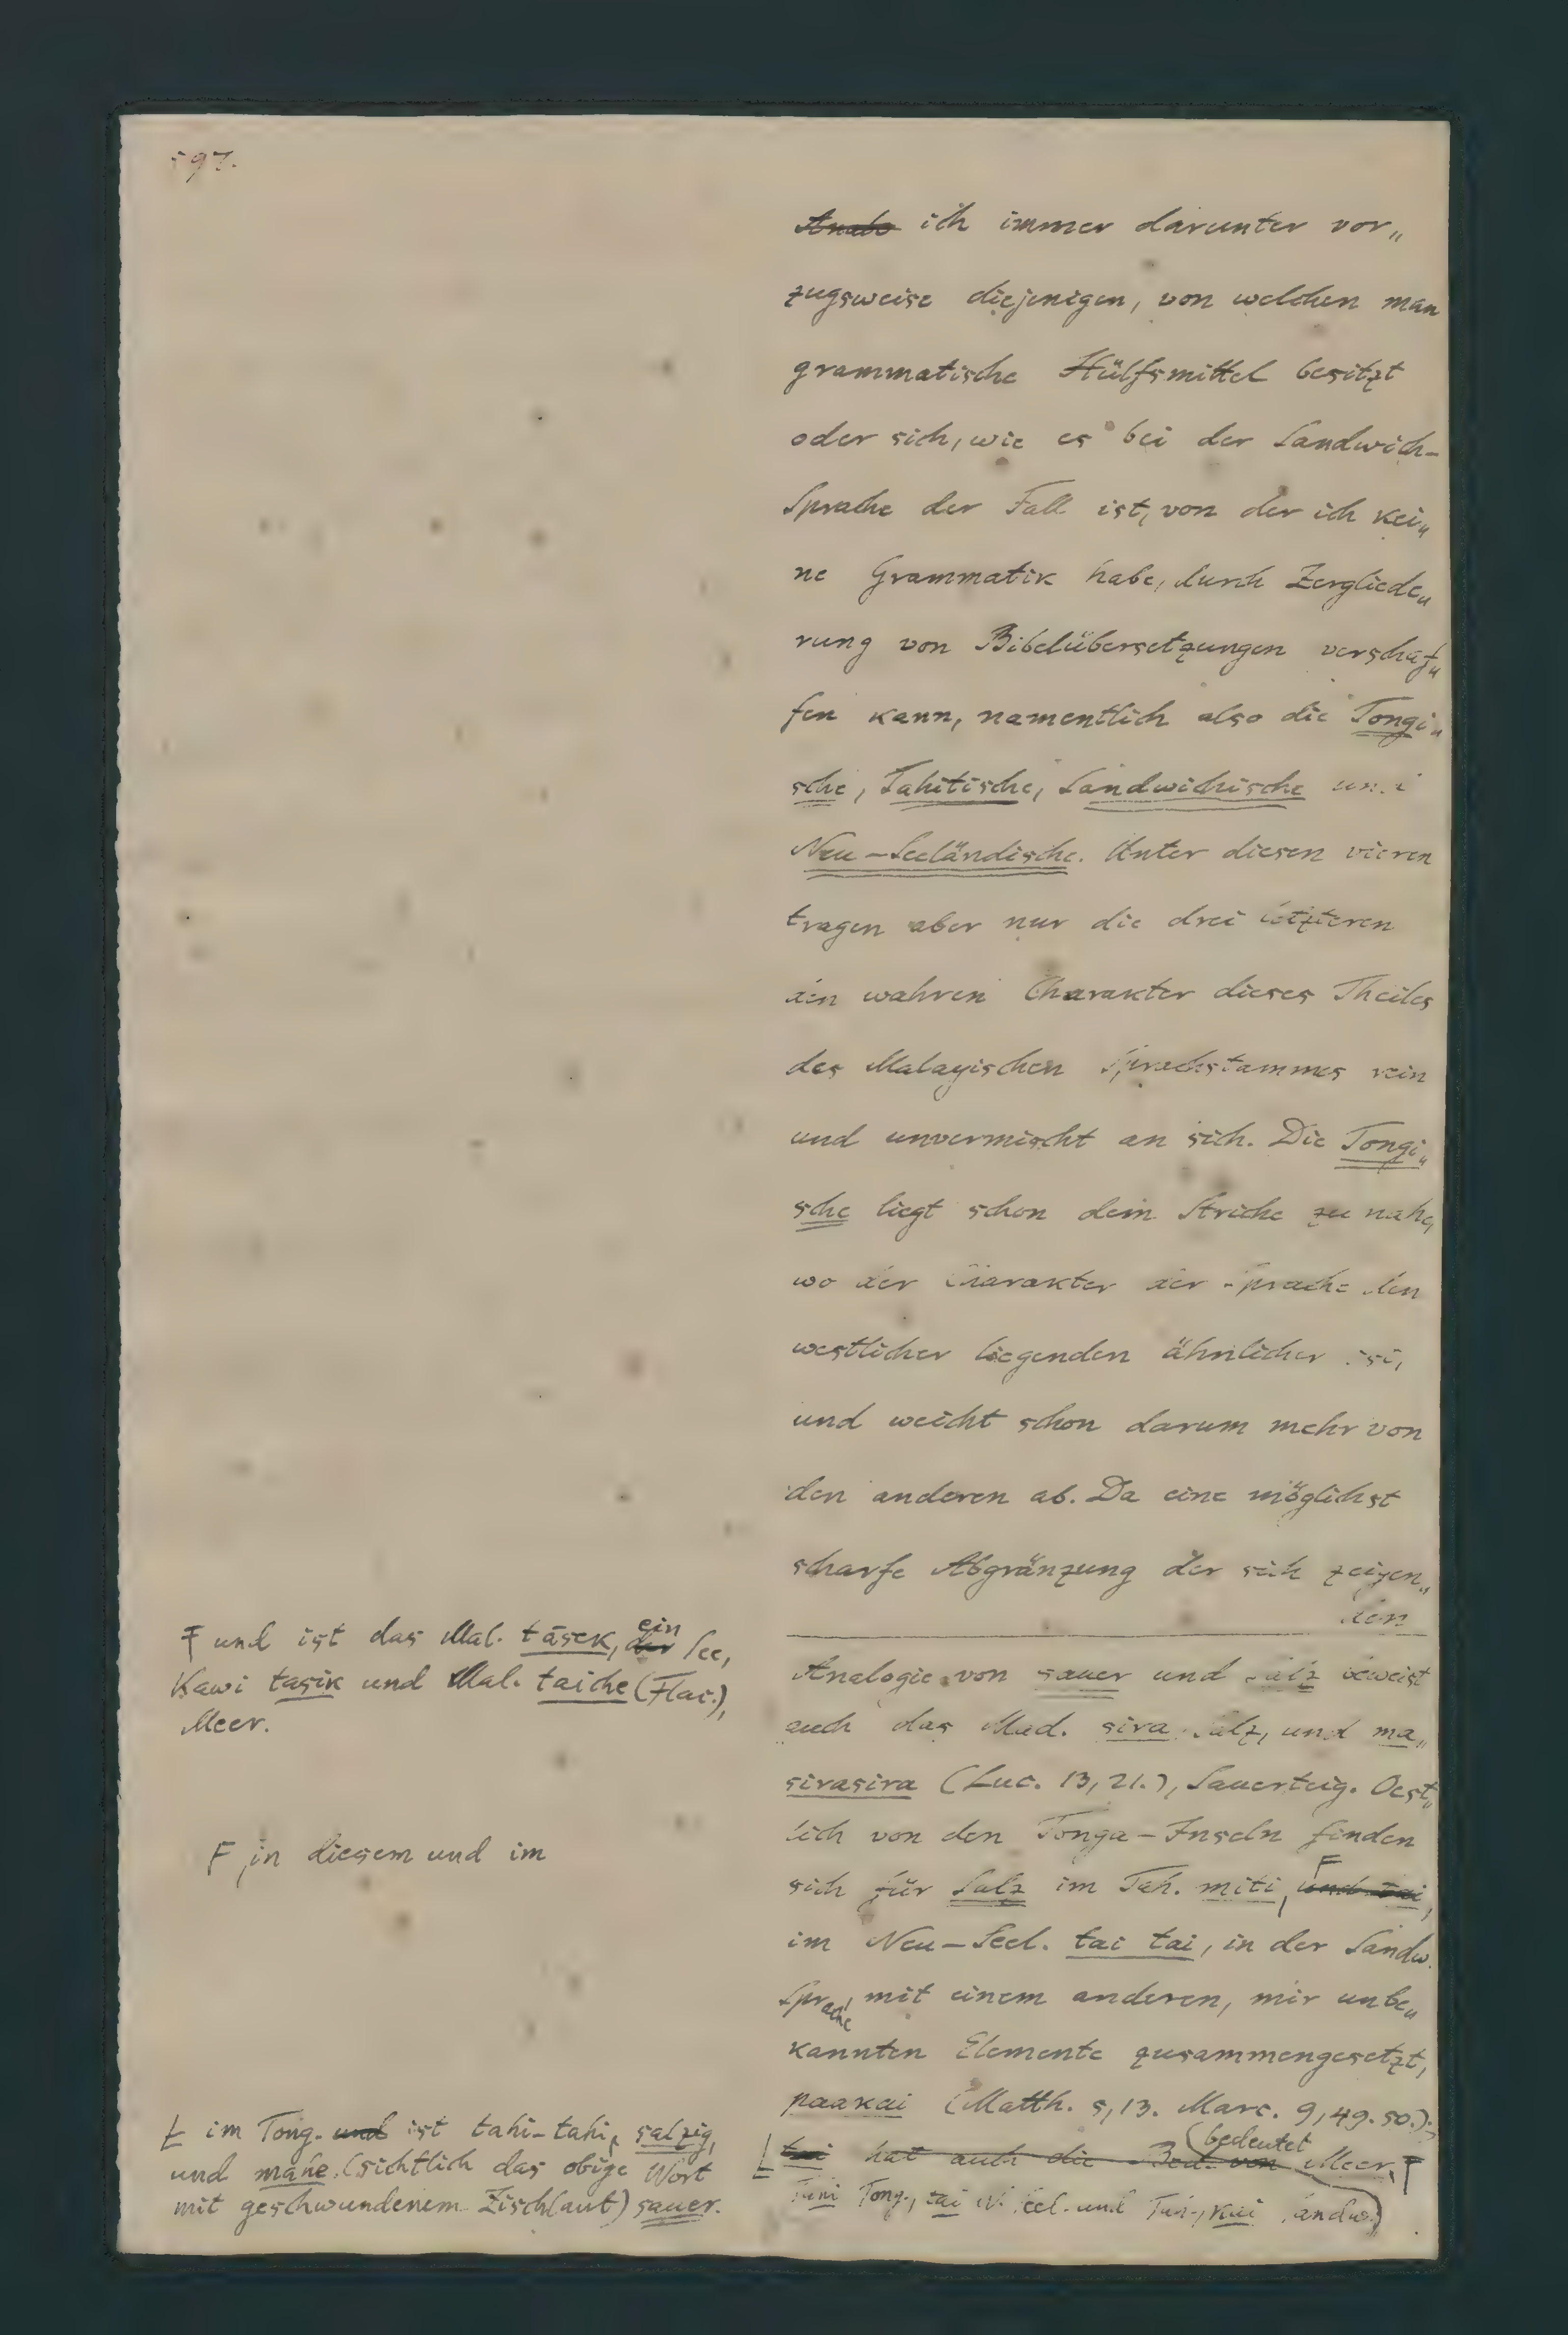 597.
ich immer darunter vor„
zugsweise diejenigen, von welchen man
grammatische Hülfsmittel besitzt
oder sich, wie es bei der Sandwich-
Sprache der Fall ist, von der ich kei„
ne Grammatik habe, durch Zergliede„
rung von Bibelübersetzungen verschaf„
fen kann, namentlich also die Tongi„
sche, Tahitische, Sandwichische und
Neu-Seeländische. Unter diesen vieren
tragen aber nur die drei letzteren
den wahren Charakter dieses Theiles
des Malayischen Sprachstammes rein
und unvermischt an sich. Die Tongi„
sche liegt schon dem Striche zu nahe,
wo der Charakter der Sprache den
westlicher liegenden ähnlicher ist,
und weicht schon darum mehr von
den anderen ab. Da eine möglichst
scharfe Abgränzung der sich zeigen„
den
Analogie von sauer und Salz beweist
auch das Mad. sira Salz, und ma„
sirasira (Luc. 13, 21.), Sauerteig. Oest„
lich von den Tonga-Inseln finden
sich für Salz im Tah. miti, F und tai,
im Neu-Seel. tai tai, in der Sandw.
Sprache, mit einem anderen, mir unbe„
kannten Elemente zusammengesetzt,
paakai (Matth. 5, 13. Marc. 9, 49. 50.);
bedeutet
L tai hat auch die Bed. von Meer, F
Tong., tai N. Seel. und Tah., kai Sandw.)
F und ist das Mal. tāsek, der ein See,
Kawi tasik und Mal. taiche (Flac.),
Meer.
F, in diesem und im
L im Tong. und ist tahi-tahi, salzig,
und mahe (sichtlich das obige Wort
mit geschwundenem Zischlaut) sauer.